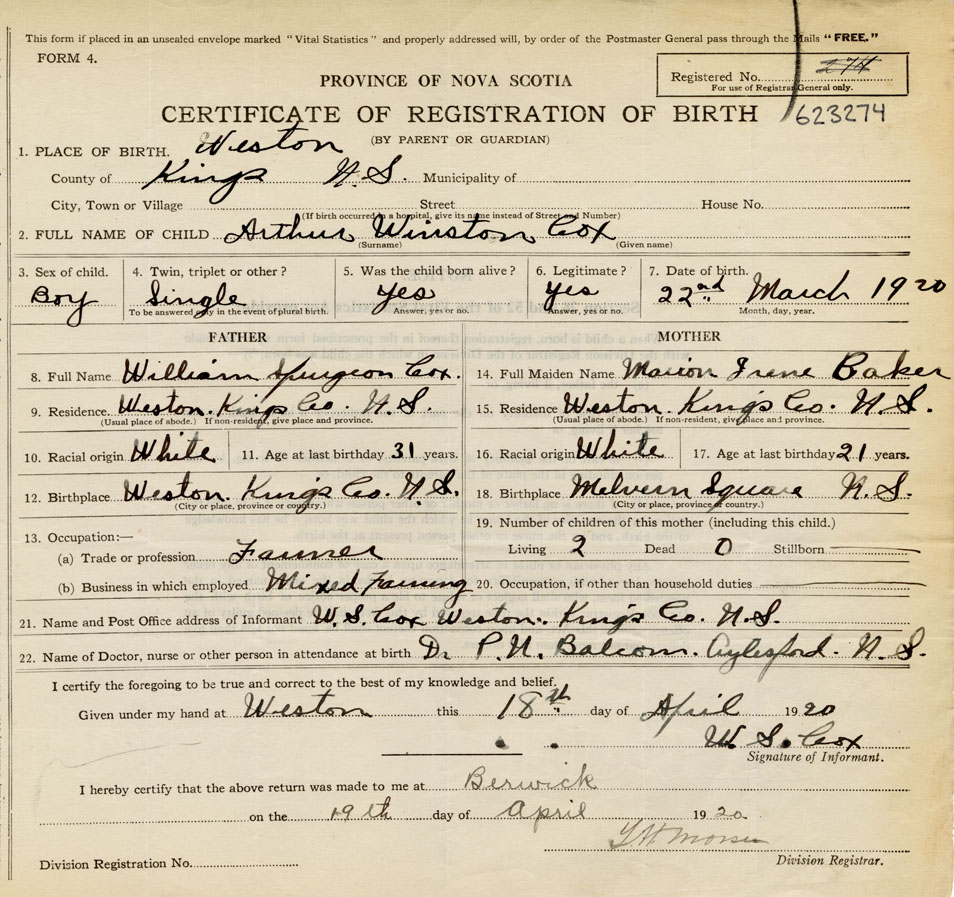 This form if placed in an unsealed envelope marked "Vital Statistics" and properly addressed will, by order of the Postmaster General pass through the Mails "FREE."
FORM 4.
PROVINCE OF NOVA SCOTIA
Registered No. 274
For use of Registrar General only.
CERTIFICATE OF REGISTRATION OF BIRTH
623274
(BY PARENT OR GUARDIAN)
1. PLACE OF BIRTH. Weston
County of Kings N.S. Municipality of
City, Town or Village Street House No.
(If birth occurred in a hospital, give its name instead of Street and Number)
2. FULL NAME OF CHILD Arthur Winston Cox
(Surname) (Given name)
3. Sex of child. 4. Twin, triplet or other? 5. Was the child born alive? 6. Legitimate? 7. Date of birth.
Boy Single Yes Yes 22nd March 1920
To be answered only in the event of plural birth. Answer, yes or no. Answer, yes or no. Month, day, year.
FATHER MOTHER
8. Full Name William Spurgeon Cox. 14. Full Maiden Name Marion Irene Baker
9. Residence. Weston. Kings Co. N.S. 15. Residence Weston. Kings Co. N.S.
(Usual place of abode.) If non-resident, give place and province. (Usual place of abode.) If non-resident, give place and province.
10. Racial origin White 11. Age at last birthday 31 years. 16. Racial origin White 17. Age at last birthday 21 years.
12. Birthplace Weston. Kings Co. N.S. 18. Birthplace Melvern Square N.S.
(City or place, province or country.) (City or place, province or country.)
13. Occupation:— 19. Number of children of this mother (including this child.)
(a) Trade or profession Farmer Living 2 Dead 0 Stillborn
(b) Business in which employed Mixed Farming 20. Occupation, if other than household duties
21. Name and Post Office address of Informant W.S. Cox Weston. Kings Co. N.S.
22. Name of Doctor, nurse or other person in attendance at birth Dr P.N. Balcom. Aylesford. N.S.
I certify the foregoing to be true and correct to the best of my knowledge and belief.
Given under my hand at Weston this 18th day of April 1920
W.S. Cox
Signature of Informant.
I hereby certify that the above return was made to me at Berwick
on the 19th day of April 1920
Division Registration No. Division Registrar.